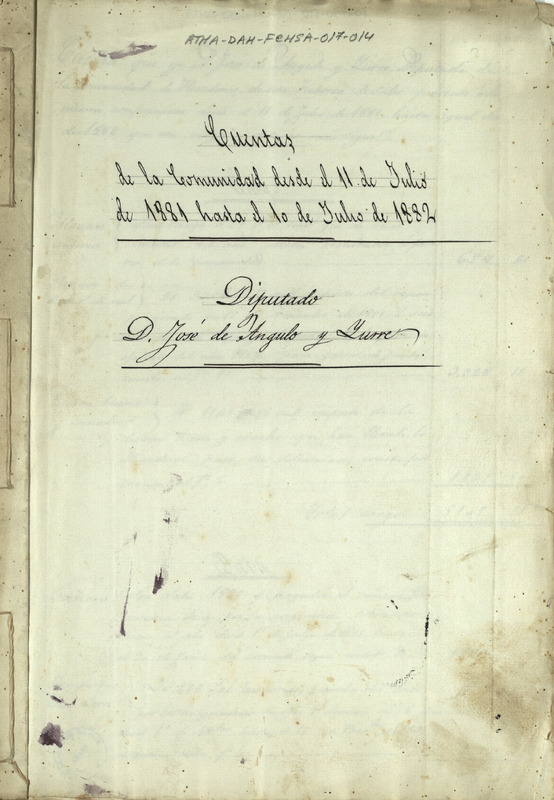 ATHA-DAH-FCHSA-017-014
Cuentas
de la Comunidad desde el 11 de Julio
de 1881 hasta el 10 de Julio de 1882
Diputado
D. José de Angulo y Yurre